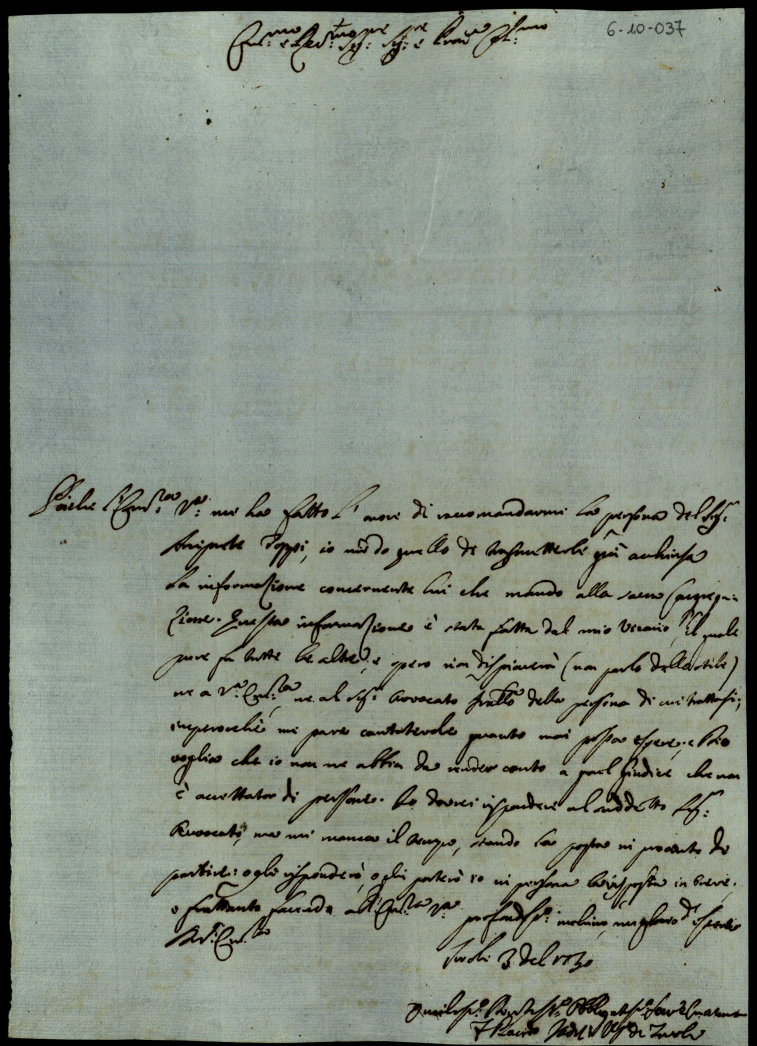 6-10-037
Em:mo e Rev:mo Sig:re Sig:re e
V:a mi ha fatto l'onore di raccomandarmi la persona del Sig:
Poppi, io quello di trasmetterli qui acchiusa
La informazione concernente lui che mando alla sacra Congrega-
zione. Questa informazione è stata fatta dal mio Vicario, il quale
pure fa tutte le altre, e spero non dispiacerà (non parlo dello stile)
ne a V:a Em:za, ne al Sig: Avvocato fratello della persona di cui trattasi;
imperocchè mi pare caritatevole quanto mai possa essere, e Dio
voglia che io non ne abbia da render conto a quel Giudice che non
è accettator di persone. Io dovrei rispondere al suddetto Sig:
Avvocato, ma mi manca il tempo, stando la posta in procinto di
partire: o gli risponderò, o gli porterò io in persona la risposta in breve,
e frattanto facendo all' Em:za V:a profondiss: inchino, mi glorio d'essere
Di V: Em:za
Tivoli 3 del
di Tivoli